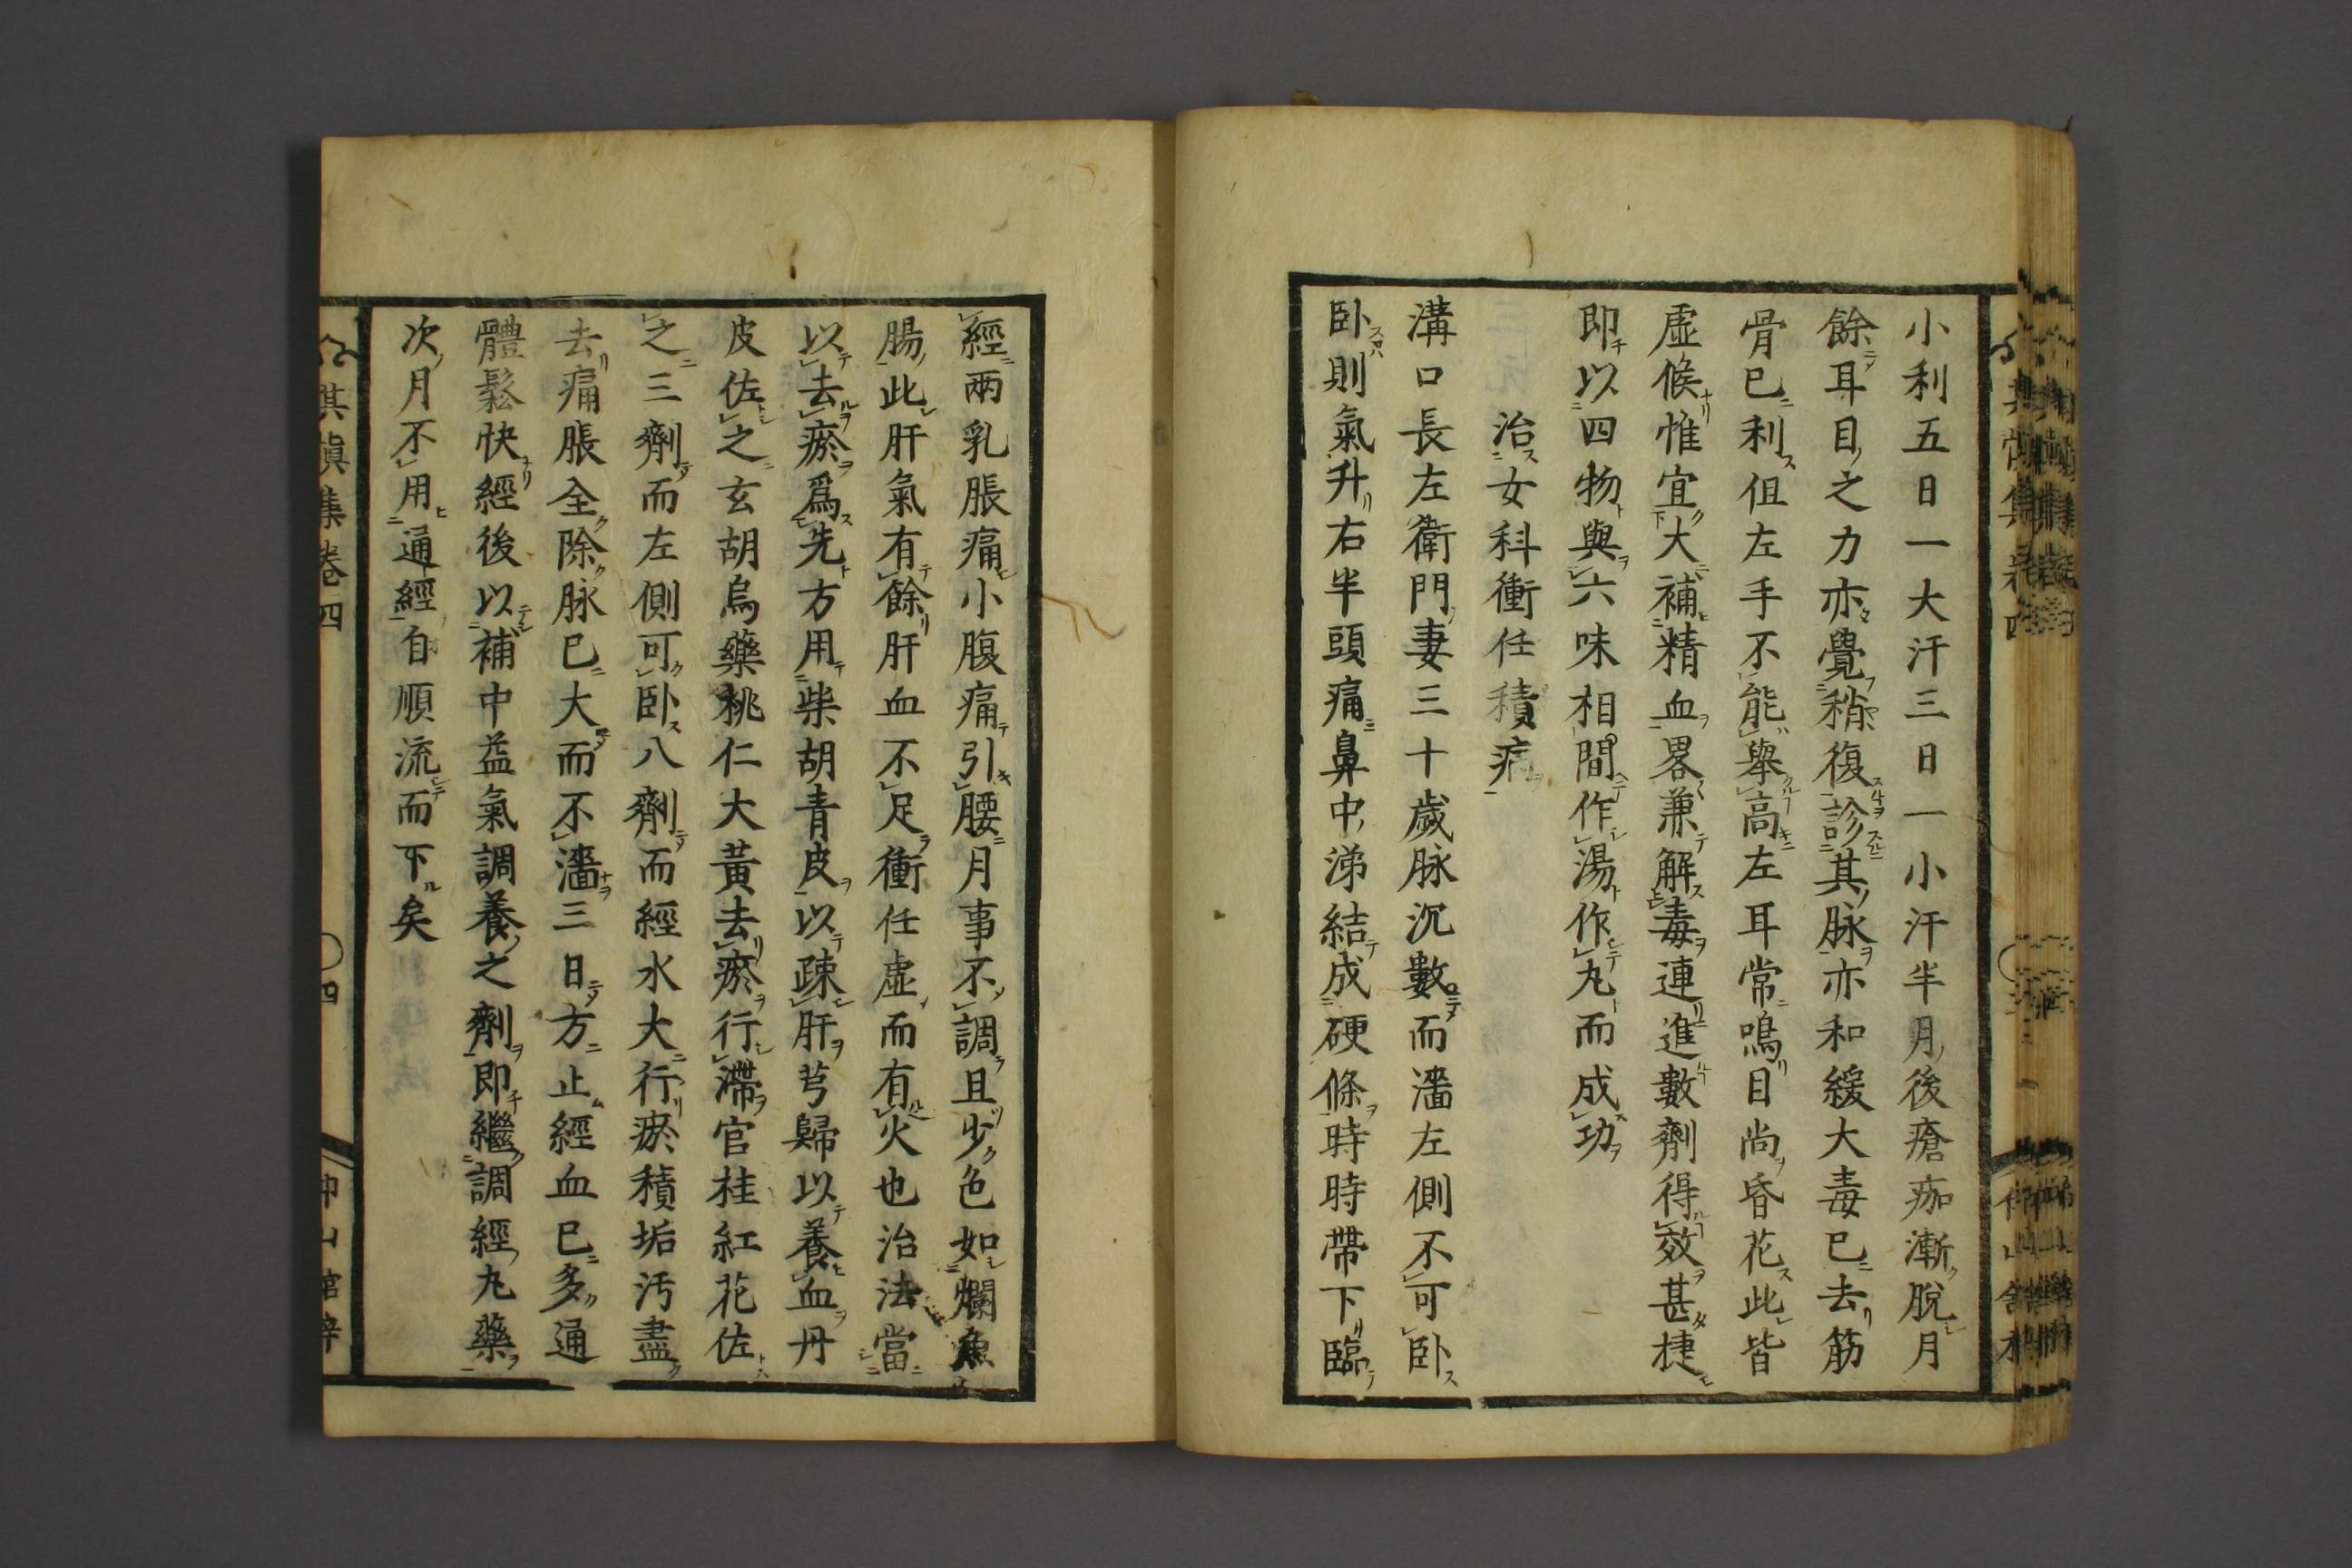 小利五日一大汗三日一小汗半月後瘡痂漸脫月
餘耳目之力亦覺稍復診其脉亦和緩大毒已去筋
骨已利但左手不能舉高左耳常鳴目尚昏花此皆
虛候惟宜大補精血畧兼解毒連進數劑得效甚捷
即以四物與六味相間作湯作丸而成功
治女科衝任積病
溝口長左衛門妻三十歲脉沉數而濇左側不可卧
卧則氣升右半頭痛鼻中涕結成硬條時時帶下臨
經兩乳脹痛小腹痛引腰月事不調且少色如爛魚
腸此肝氣有餘肝血不足衝任虛而有火也治法當
以去瘀爲先方用柴胡青皮以疎肝芎歸以養血丹
皮佐之玄胡烏藥桃仁大黃去瘀行滯官桂紅花佐
之三劑而左側可卧八劑而經水大行瘀積垢污盡
去痛脹全除脉已大而不濇三日方止經血已多通
體鬆快經後以補中益氣調養之劑即繼調經丸藥
次月不用通經自順流而下矣
集卷四
四